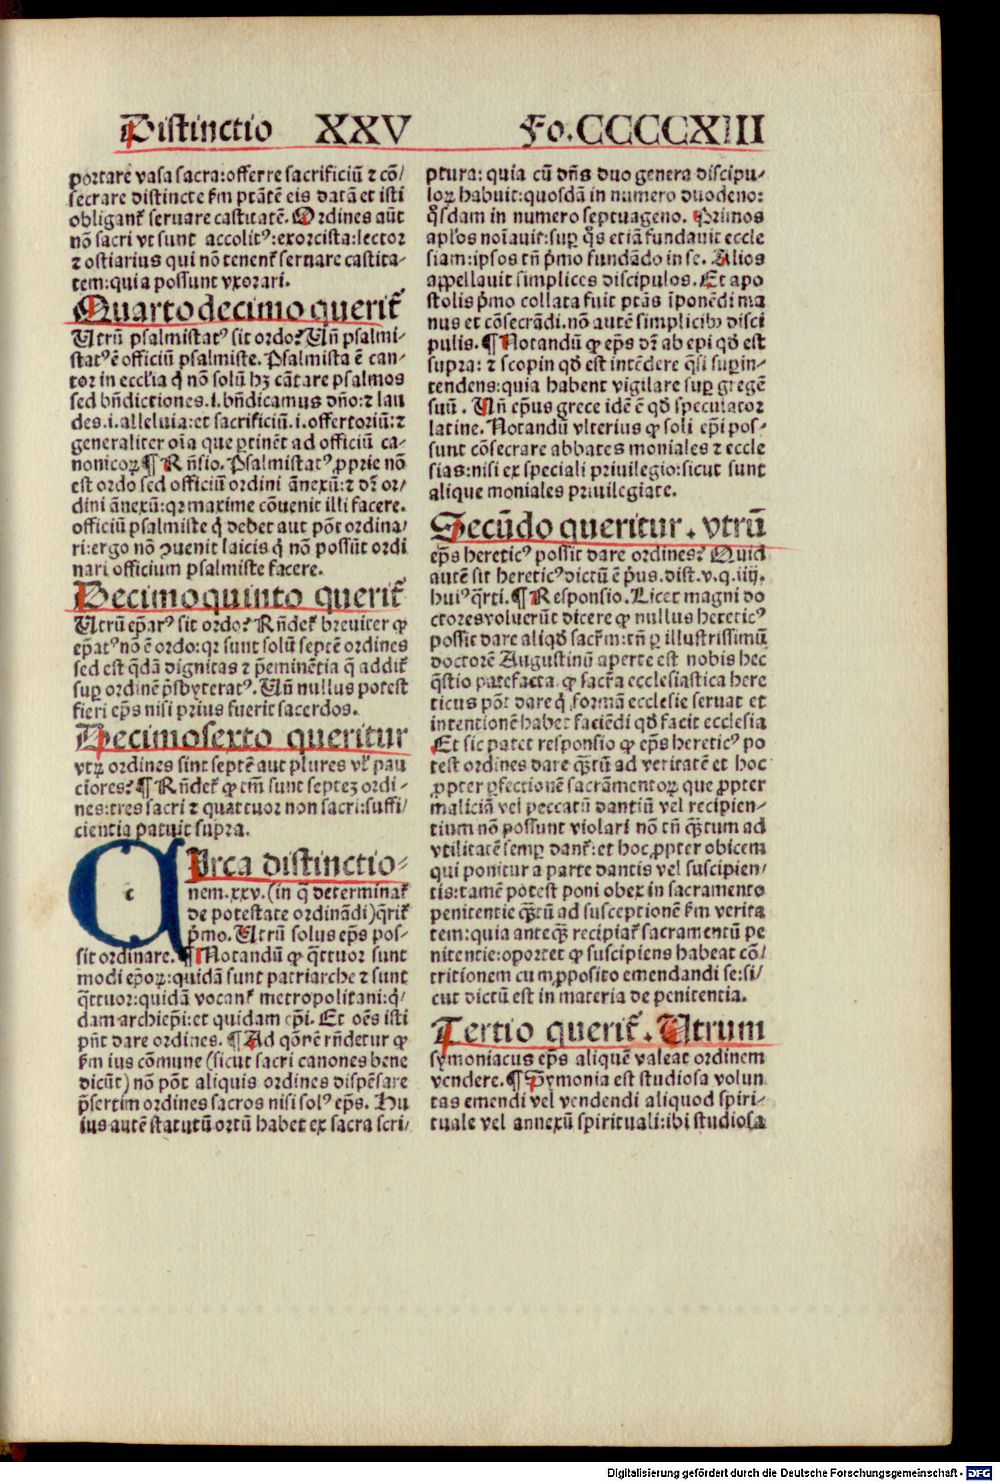 Distinctio XXV Fo.CCCCCXIII
portare vasa sacra:offerre sacrificiū ⁊ cō/
secrare distincte s̄m ptātē eis datā et isti
obliganť seruare castitatē. Ordines aūt
nō sacri vt sunt accolitꝰ:exorcista:lector
⁊ ostiarius qui nō tenenť seruare castita-
tem:quia possunt vxorari.
Quartodecimo querit̃
Utrū psalmistatꝰ sit ordo? Uñ psalmi-
statꝰ ē officiū psalmiste. Psalmista ē can-
tor in eccl'ia q̇ nō solū hꝫ cātare psalmos
sed bñdictiones.i.bñdicamus dño:⁊ lau
des.i.alleluia:et sacrificiū.i.offertoriū:⁊
generaliter oīa que ꝑtinēt ad officiū ca-
nonicoꝝ ¶ Rñsio. Psalmistatꝰ ꝓprie nō
est ordo sed officiū ordini ānexū:⁊ dr̄ or/
dini ānexū:qꝛ maxime cōuenit illi facere.
officiū psalmiste q̇ debet aut pōt ordina/
ri:ergo nō ꝯuenit laicis q̇ nō possūt ordi
nari officium psalmiste facere.
Decimoquinto querit̃
Utrū ep̄atꝰ sit ordo? Rñdeť breuiter ꝙ
ep̄atꝰ nō ē ordo:qꝛ sunt solū septē ordines
sed est q̄dā dignitas ⁊ p̄eminētia q̄ addiť
suꝑ ordinē p̄sbyteratꝰ. Uñ nullus potest
fieri ep̄s nisi prius fuerit sacerdos.
Decimosexto queritur
vtꝝ ordines sint septē aut plures vl' pau
ciores? ¶ Rñdeť ꝙ tm̄ sunt septeꝫ ordi-
nes:tres sacri ⁊ quattuor non sacri:suffi/
cientia patuit supra.
Circa distinctio-
nem.xxv.(in q̄ determinať
de potestate ordinādi)q̄riť
p̄mo. Utrū solus ep̄s pos-
sit ordinare. ¶ Notandū ꝙ q̄ttuor sunt
modi ep̄oꝝ:quidā sunt patriarche ⁊ sunt
q̄ttuor:quidā vocanť metropolitani:q̇/
dam archiep̄i:et quidam ep̄i. Et oēs isti
pñt dare ordines. ¶ Ad qōnē rñdetur ꝙ
s̄m ius cōmune (sicut sacri canones bene
dicūt) nō pōt aliquis ordines dispēsare
p̄sertim ordines sacros nisi solꝰ ep̄s. Hu
ius autē statutū ortū habet ex sacra scri/
ptura: quia cū dñs duo genera discipu-
loꝝ habuit:quosdā in numero duodeno:
q̊sdam in numero septuageno. Primos
apl'os noīauit:suꝑ q̊s etiā fundauit eccle
siam:ipsos tñ p̄mo fundādo in se. Alios
appellauit simplices discipulos. Et apo
stolis p̄mo collata fuit ptās īponēdi ma
nus et cōsecrādi.nō autē simplicibꝫ disci
pulis. ¶ Notandū ꝙ ep̄s dr̄ ab epi qd̄ est
supra: ⁊ scopin qd̄ est intēdere q̄si suꝑin-
tendens:quia habent vigilare suꝑ gregē
suū. Uñ ep̄us grece idē ē qd̄ speculator
latine. Notandū vlterius ꝙ soli ep̄i pos-
sunt cōsecrare abbates moniales ⁊ eccle
sias:nisi ex speciali priuilegio:sicut sunt
alique moniales priuilegiate.
Secūdo queritur. vtrū
ep̄s hereticꝰ possit dare ordines? Quid
autē sit hereticꝰ dictū ē p̄us.dist.v.q.iiij.
huiꝰ q̄rti. ¶ Responsio. Licet magni do
ctores voluerūt dicere ꝙ nullus hereticꝰ
possit dare aliqd̄ sacr̄m:tñ ꝑ illustrissimū
doctorē Augustinū aperte est nobis hec
q̄stio patefacta. ꝙ sacr̄a ecclesiastica here
ticus pōt dare q̇ formā ecclesie seruat et
intentionē habet faciēdi qd̄ facit ecclesia
Et sic patet responsio ꝙ ep̄s hereticꝰ po
test ordines dare q̄ꝫtū ad veritatē et hoc
ꝓpter ꝑfectionē sacramētoꝝ que ꝓpter
maliciā vel peccatū dantiū vel recipien-
tium nō possunt violari nō tñ q̄ꝫtum ad
vtilitatē semꝑ danť:et hoc ꝓpter obicem
qui ponitur a parte dantis vel suscipien/
tis:tamē potest poni obex in sacramento
penitentie q̄ꝫtū ad susceptionē s̄m verita
tem:quia anteq̄ꝫ recipiať sacramentū pe
nitentie:oportet ꝙ suscipiens habeat cō/
tritionem cum ꝓposito emendandi se:si/
cut dictū est in materia de penitentia.
Tertio querit̃. Utrum
symoniacus ep̄s aliquē valeat ordinem
vendere. ¶ Symonia est studiosa volun
tas emendi vel vendendi aliquod spiri-
tuale vel annexū spirituali:ibi studiosa
Digitalisierung gefördert durch die Deutsche Forschungsgemeinschaft - DFG